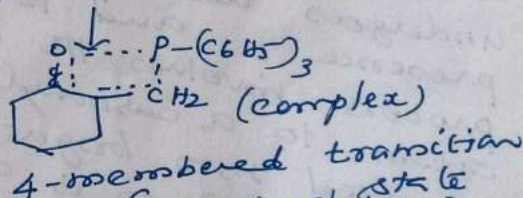 O P-(C6H5)3
C CH2 (complex)
4-membered transition
state